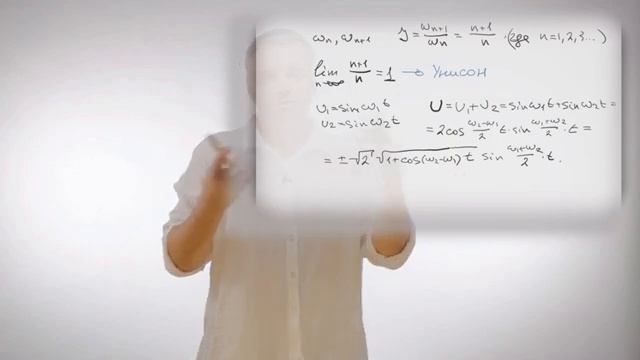 ωn, ωn+1 J = ωn+1/ωn = n+1/n · (где n=1,2,3...)
lim n→∞ n+1/n = 1 → Унисон
U1=sinω1t U = U1+U2 = sinω1t+sinω2t =
U2=sinω2t = 2cos ω2-ω1/2 t · sin ω1+ω2/2 · t =
= ±√2 √1+cos(ω2-ω1)t sin ω1+ω2/2 · t.